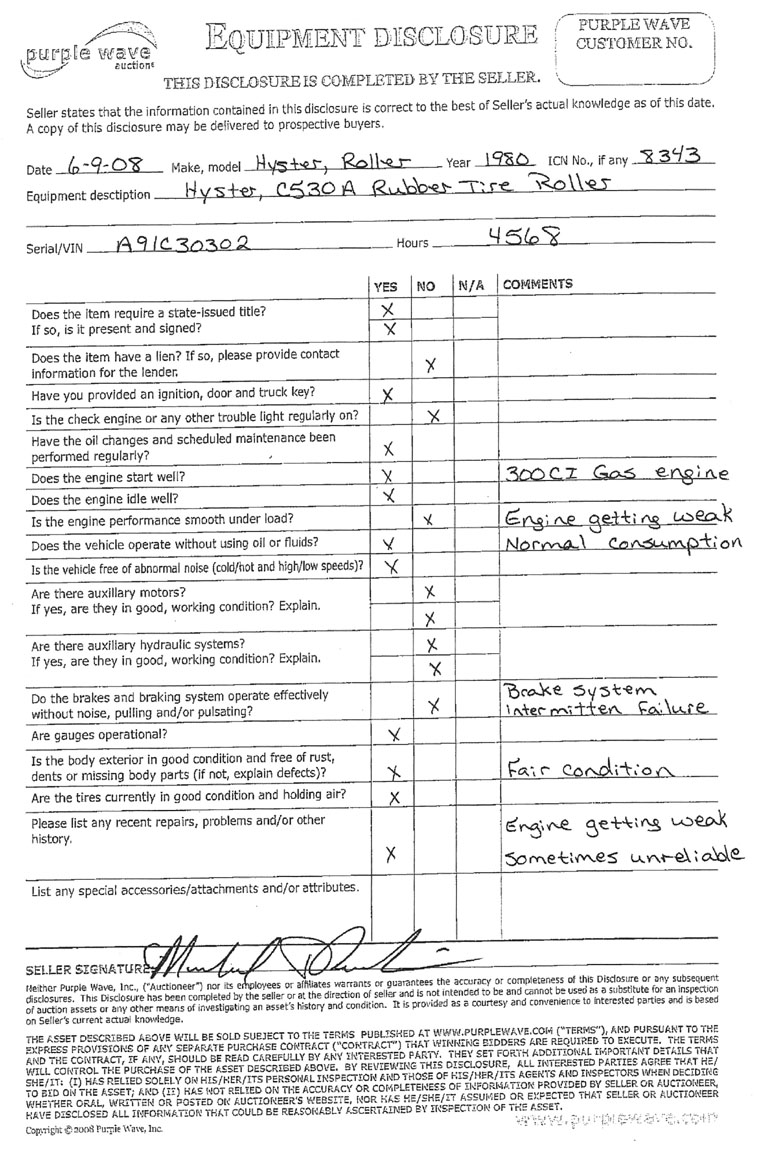 purple wave
auctions
EQUIPMENT DISCLOSURE
PURPLE WAVE
CUSTOMER NO.
THIS DISCLOSURE IS COMPLETED BY THE SELLER.
Seller states that the information contained in this disclosure is correct to the best of Seller's actual knowledge as of this date.
A copy of this disclosure may be delivered to prospective buyers.
Date 6-9-08 Make, model Hyster, Roller Year 1980 ICN No., if any 8343
Equipment desctiption Hyster, C530A Rubber Tire Roller
Serial/VIN A91C30302 Hours 4568
YES NO N/A COMMENTS
Does the item require a state-issued title? X
If so, is it present and signed? X
Does the item have a lien? If so, please provide contact
information for the lender. X
Have you provided an ignition, door and truck key? X
Is the check engine or any other trouble light regularly on? X
Have the oil changes and scheduled maintenance been
performed regularly? X
Does the engine start well? X 300CI Gas engine
Does the engine idle well? X
Is the engine performance smooth under load? X Engine getting weak
Does the vehicle operate without using oil or fluids? X Normal consumption
Is the vehicle free of abnormal noise (cold/hot and high/low speeds)? X
Are there auxillary motors? X
If yes, are they in good, working condition? Explain. X
Are there auxiliary hydraulic systems? X
If yes, are they in good, working condition? Explain. X
Do the brakes and braking system operate effectively Brake System
without noise, pulling and/or pulsating? X intermitten Failure
Are gauges operational? X
Is the body exterior in good condition and free of rust,
dents or missing body parts (if not, explain defects)? X Fair condition
Are the tires currently in good condition and holding air? X
Please list any recent repairs, problems and/or other Engine getting weak
history.
X Sometimes unreliable
List any special accessories/attachments and/or attributes.
SELLER SIGNATURE
Neither Purple Wave, Inc., ("Auctioneer") nor its employees or affiliates warrants or guarantees the accuracy or completeness of this Disclosure or any subsequent
disclosures. This Disclosure has been completed by the seller or at the direction of seller and is not intended to be and cannot be used as a substitute for an inspection
of auction assets or any other means of investigating an asset's history and condition. It is provided as a courtesy and convenience to interested parties and is based
on Seller's current actual knowledge.
THE ASSET DESCRIBED ABOVE WILL BE SOLD SUBJECT TO THE TERMS PUBLISHED AT WWW.PURPLEWAVE.COM ("TERMS"), AND PURSUANT TO THE
EXPRESS PROVISIONS OF ANY SEPARATE PURCHASE CONTRACT ("CONTRACT") THAT WINNING BIDDERS ARE REQUIRED TO EXECUTE. THE TERMS
AND THE CONTRACT, IF ANY, SHOULD BE READ CAREFULLY BY ANY INTERESTED PARTY. THEY SET FORTH ADDITIONAL IMPORTANT DETAILS THAT
WILL CONTROL THE PURCHASE OF THE ASSET DESCRIBED ABOVE. BY REVIEWING THIS DISCLOSURE, ALL INTERESTED PARTIES AGREE THAT HE/
SHE/IT: (I) HAS RELIED SOLELY ON HIS/HER/ITS PERSONAL INSPECTION AND THOSE OF HIS/HER/ITS AGENTS AND INSPECTORS WHEN DECIDING
TO BID ON THE ASSET; AND (II) HAS NOT RELIED ON THE ACCURACY OR COMPLETENESS OF INFORMATION PROVIDED BY SELLER OR AUCTIONEER,
WHETHER ORAL, WRITTEN OR POSTED ON AUCTIONEER'S WEBSITE, NOR HAS HE/SHE/IT ASSUMED OR EXPECTED THAT SELLER OR AUCTIONEER
HAVE DISCLOSED ALL INFORMATION THAT COULD BE REASONABLY ASCERTAINED BY INSPECTION OF THE ASSET.
www.purplewave.com
Copyright © 2008 Purple Wave, Inc.